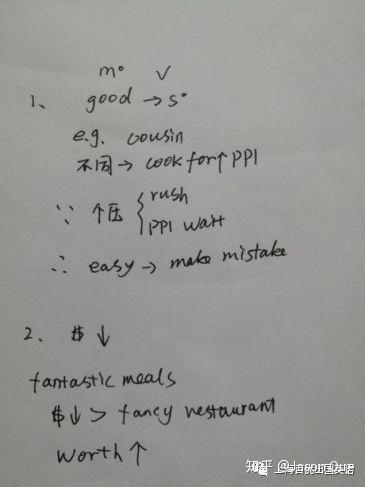 m° V
1、 good → s°
e.g. cousin
不同 → cook for ↑ PPl
∵ 个压 { rush
PPl wait
∴ easy → make mistake
2、 $ ↓
fantastic meals
$↓ > fancy restaurant
worth ↑
知乎